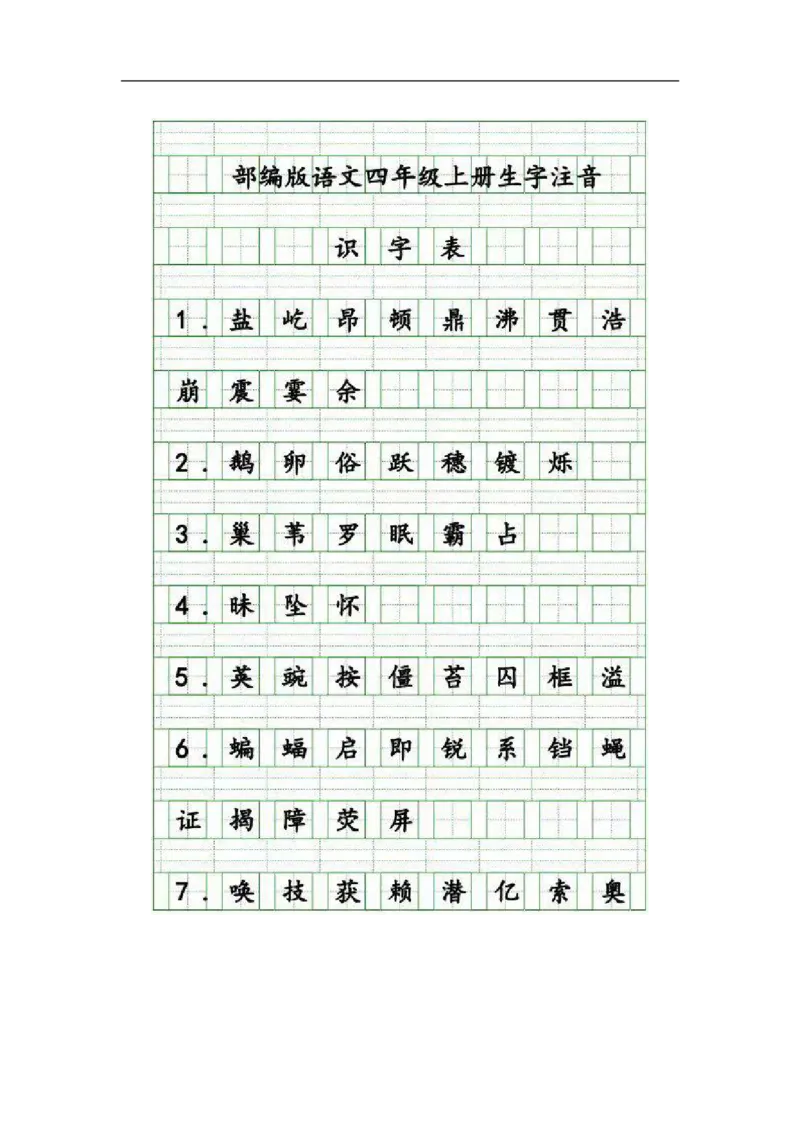 部编版语文四年级上册生字注音
识字表
1.盐屹昂顿鼎沸贯浩
崩震霎余
2.鹅卵俗跃穗镀烁
3.巢苇罗眠霸占
4.昧坠怀
5.英豌按僵苔囚框溢
6.蝙蝠启即锐系铛蝇
证揭障荧屏
7.唤技获赖潜亿索奥